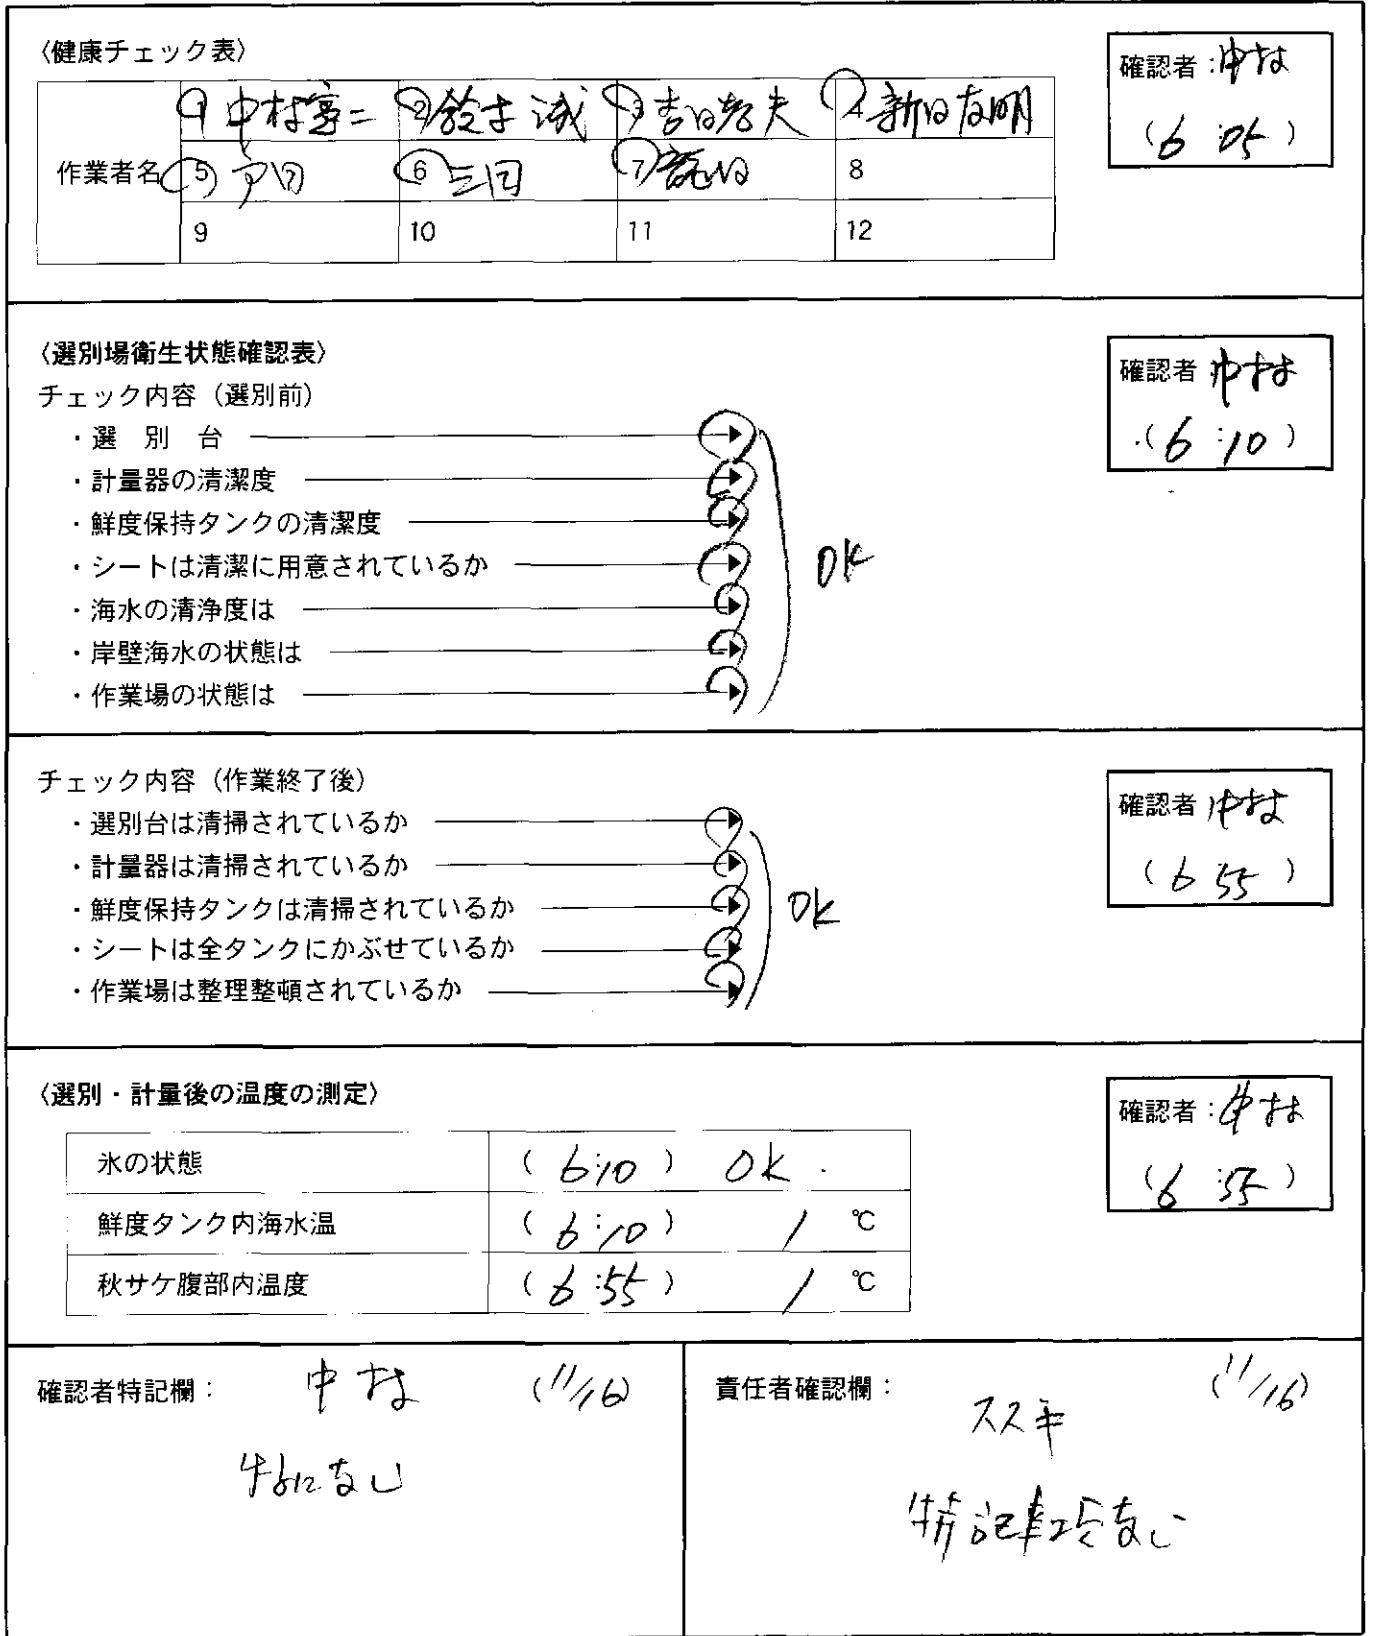 〈健康チェック表〉
確認者：中村
(6:05)
作業者名
1 中村 2 鈴木 誠 3 吉田孝夫 4 新田友明
5 戸田 6 三国 7 8
9 10 11 12
〈選別場衛生状態確認表〉
確認者 中村
(6:10)
チェック内容（選別前）
・選 別 台
・計量器の清潔度
・鮮度保持タンクの清潔度
・シートは清潔に用意されているか
OK
・海水の清浄度は
・岸壁海水の状態は
・作業場の状態は
チェック内容（作業終了後）
確認者 中村
(6 55)
・選別台は清掃されているか
・計量器は清掃されているか
・鮮度保持タンクは清掃されているか
OK
・シートは全タンクにかぶせているか
・作業場は整理整頓されているか
〈選別・計量後の温度の測定〉
確認者：中村
(6:55)
氷の状態 (6:10) OK.
鮮度タンク内海水温 (6:10) 1 ℃
秋サケ腹部内温度 (6:55) 1 ℃
確認者特記欄： 中村 (11/16)
特になし
責任者確認欄： (11/16)
ススキ
特記事項なし